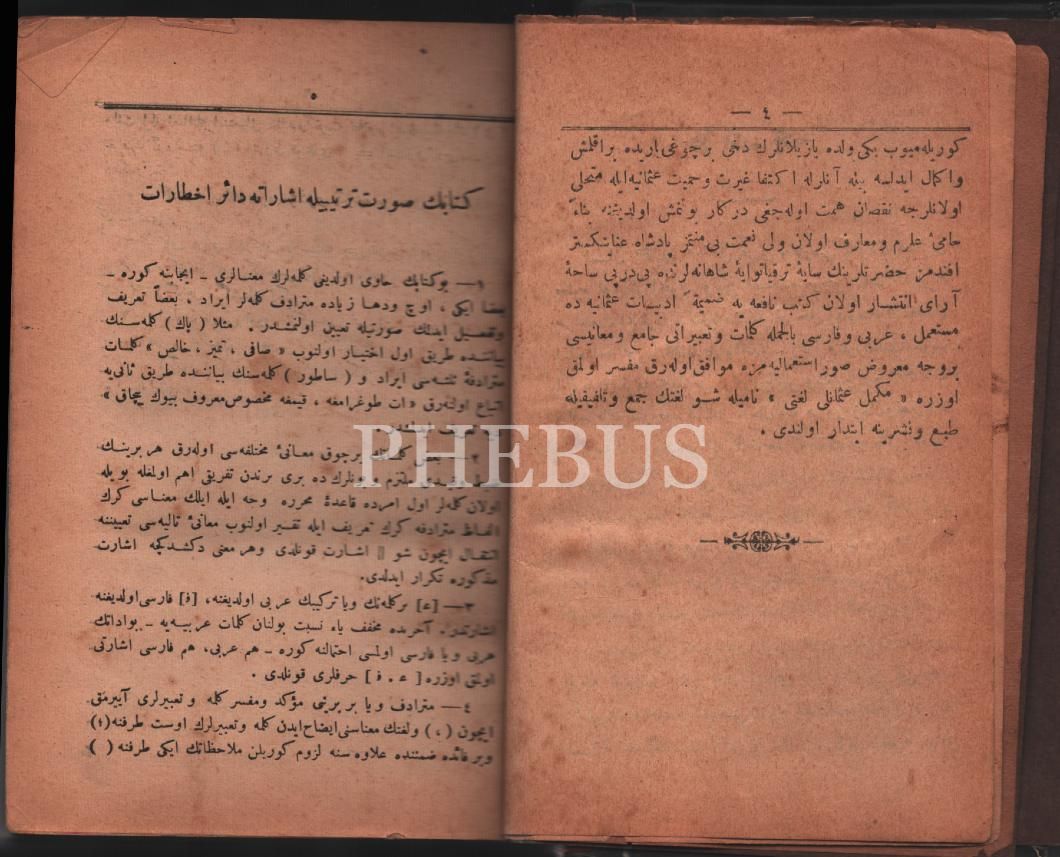 — ٤ —
كوريله‌ميوب يكى ولده يازيلانلرك دخى برچوغى ياريده براقلمش
واكمال ايدلسه بيله آنارله اكتفا غيرت وحميت عثمانيه‌ايله متحلى
اولانلرجه نقصان همت اوله‌جغى دركار بولنمش اولديغنه بناءً
حامىٔ علوم ومعارف اولان ولى نعمت بى‌منتمز پادشاه عنايتكستر
افندمز حضرتلرينك سايهٔ ترقياتوايهٔ شاهانه‌لرنده پى‌درپى ساحهٔ
آراى انتشار اولان كتب نافعه‌يه ضميمةً ادبيات عثمانيه ده
مستعمل ، عربى وفارسى بالجمله كلمات وتعبيراتى جامع ومعانيسى
بروجه معروض صور استعماليه‌مزه موافق‌اوله‌رق مفسر اولمق
اوزره « مكمل عثمانلى لغتى » ناميله شو لغتك جمع وتلفيقيله
طبع ونشرينه ابتدار اولندى .
٥
كتابك صورت ترتيبيله اشاراته دائر اخطارات
١ — بوكتابك حاوى اولديغى كلمه‌لرك معنالرى ـ ايجابنه كوره ـ
بعضا ايكى ، اوچ ودها زياده مترادف كلمه‌لر ايراد ، بعضاً تعريف
وتفصيل ايدلك صورتيله تعيين اولنمشدر . مثلا ( پاك ) كلمه‌سنك
بياننده طريق اول اختيار اولنوب « صافى ، تميز ، خالص » كلمات
مترادفهٔ ثلثه‌سى ايراد و ( ساطور ) كلمه‌سنك بياننده طريق ثانى‌يه
اتباع اولنه‌رق « ات طوغرامغه ، قيمغه مخصوص معروف بيوك بيچاق »
٢ — بعض كلمه‌نك برچوق معانىٔ مختلفه‌سى اوله‌رق هر برينك
ملتزم بونلرك ده برى برندن تفريقى اهم اولمغله بويله
اولان كلمه‌لر اول امرده قاعدهٔ محرره وجه ايله ايلك معناسى كرك
الفاظ مترادفه كرك تعريف ايله تفسير اولنوب معانىٔ تاليه‌سى تعييننه
انتقال ايچون شو || اشارت قونلدى وهر معنى دكشدكجه اشارت
مذكوره تكرار ايدلدى.
٣ — [ع] بركلمه‌نك ويا تركيبك عربى اولديغنه، [ف] فارسى‌اولديغنه
اشارتدر . آخرنده مخفف ياء نسبت بولنان كلمات عربيه‌يه ـ بواداتك
عربى ويا فارسى اولمسى احتمالنه كوره ـ هم عربى، هم فارسى اشارتى
اولمق اوزره [ ع . ف ] حرفلرى قونلدى .
٤ — مترادف ويا بر بريني مؤكد ومفسر كلمه وتعبيرلرى آييرمق
ايچون ( ، ) ولغتك معناسنى‌ايضاح‌ايدن كلمه وتعبيرلرك اوست طرفنه (؛)
وبر فائده ضمننده علاوه‌سنه لزوم كوريلن ملاحظاتك ايكى طرفنه ( )
PHEBUS